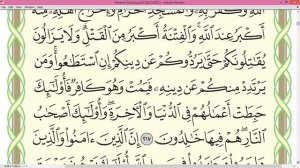 أَكْبَرُ عِندَ ٱللَّهِ ۚ وَٱلْفِتْنَةُ أَكْبَرُ مِنَ ٱلْقَتْلِ ۗ وَلَا يَزَالُونَ
يُقَـٰتِلُونَكُمْ حَتَّىٰ يَرُدُّوكُمْ عَن دِينِكُمْ إِنِ ٱسْتَطَـٰعُوا۟ ۚ وَمَن
يَرْتَدِدْ مِنكُمْ عَن دِينِهِۦ فَيَمُتْ وَهُوَ كَافِرٌ فَأُو۟لَـٰٓئِكَ
حَبِطَتْ أَعْمَـٰلُهُمْ فِى ٱلدُّنْيَا وَٱلْـَٔاخِرَةِ ۖ وَأُو۟لَـٰٓئِكَ أَصْحَـٰبُ
ٱلنَّارِ ۖ هُمْ فِيهَا خَـٰلِدُونَ ٢١٧ إِنَّ ٱلَّذِينَ ءَامَنُوا۟ وَٱلَّذِينَ